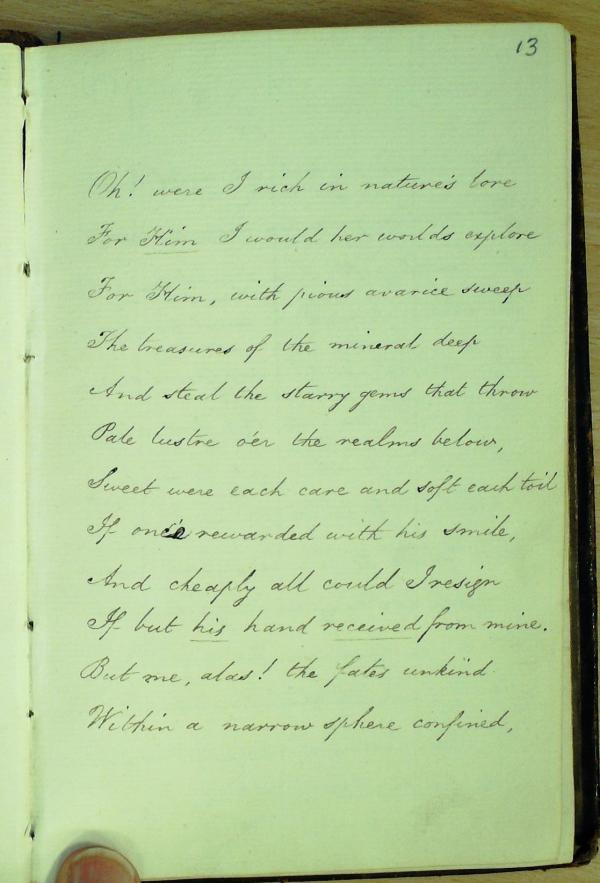 13
Oh! were I rich in nature's lore
For Him I would her worlds explore
For Him, with pious avarice sweep
The treasures of the mineral deep
And steal the starry gems that throw
Pale lustre o'er the realms below,
Sweet were each care and soft each toil
If once rewarded with his smile,
And cheaply all could I resign
If but his hand received from mine.
But me, alas! the fates unkind
Within a narrow sphere confined,